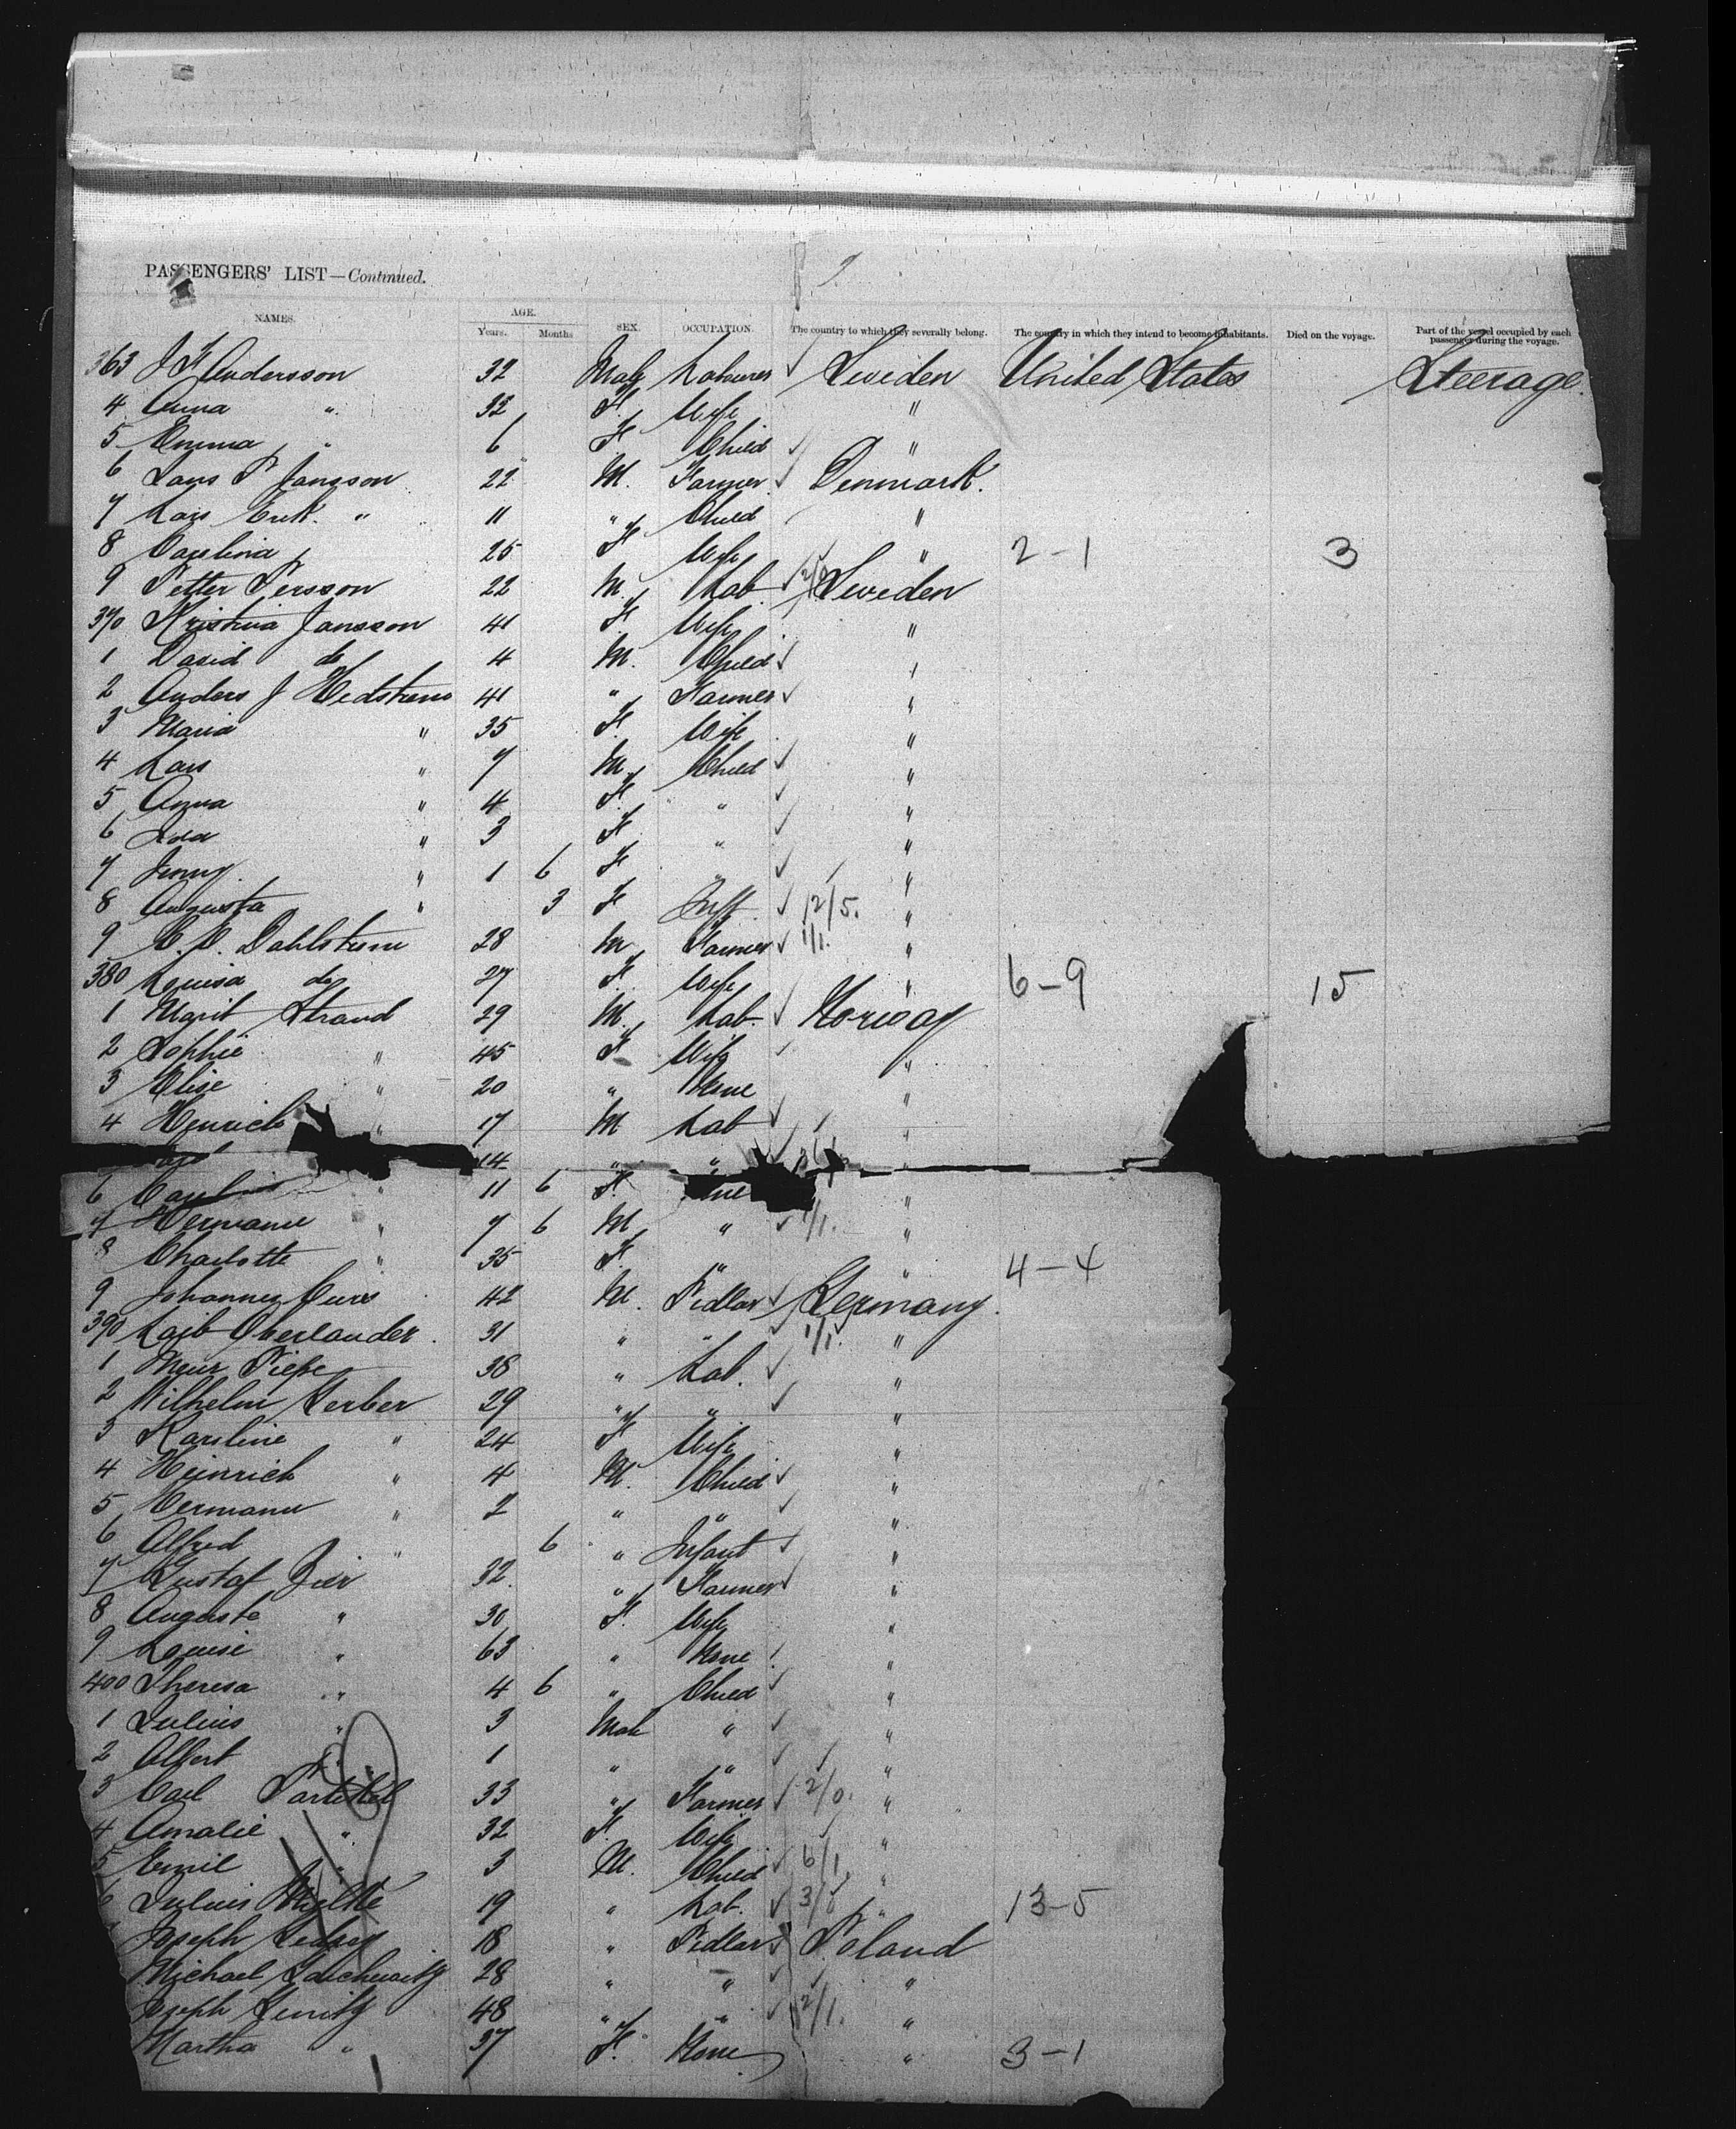 PASSENGERS' LIST—Continued.
NAMES. AGE. Years. Months SEX. OCCUPATION. The country to which they severally belong. The country in which they intend to become inhabitants. Died on the voyage. Part of the vessel occupied by each passenger during the voyage.
363 J F Andersson 32 Male Labourer Sweden United States Steerage.
4 Anna " 32 F. Wife "
5 Emma " 6 F Child "
6 Lars P Jansson 22 M. Farmer Denmark.
7 Lars Erik. " 11 " Child "
8 Carolina 25 F Wife " 2-1 3
9 Petter Persson 22 M. Lab 2/0 Sweden
370 Kristina Jansson 41 F. Wife "
1 David do 4 M. Child "
2 Anders J Hedstrom 41 " Farmer "
3 Maria " 35 F. Wife "
4 Lars " 7 M. Child "
5 Anna " 4 F. " "
6 Ida " 3 F. " "
7 Jenny " 1 6 F " "
8 Augusta " 3 F Inft. 12/5. "
9 C. O. Dahlstrom 28 M Farmer 1/1. "
380 Louisa do 27 F. Wife " 6-9 15
1 Marit Strand 29 M. Lab. Norway
2 Sophie " 45 F Wife "
3 Elise " 20 " None "
4 Henrich " 17 M Lab "
14 " "
6 " 11 6 F. "
7 Hermann " 7 6 M " 1/1. "
8 Charlotte " 35 F. " " 4-4
9 Johannes 42 M. Pedlar Germany.
390 Laib Oberlander 31 " " 1/1. "
1 Meier 38 " Lab. "
2 Wilhelm Gerber 29 " " "
3 Karoline " 24 F Wife "
4 Heinrich " 4 M. Child "
5 Hermann " 2 " " "
6 Alfred " 6 " Infant "
7 Gustaf Zier 32. " Farmer "
8 Auguste " 30 F. Wife "
9 Louise " 63 " None "
400 Theresa " 4 6 " Child "
1 Julius " 3 Male " "
2 Albert " 1 " " "
3 Carl 33 " Farmer 2/0. "
4 Amalie " 32 F. Wife "
5 Emil " 3 M. Child 6/1 "
6 Julius 19 " Lab. " 13-5
Joseph 18 " Pedlar Poland
Michael 28 " " "
Joseph 48 " " 2/1. "
Martha " 37 F. None " 3-1